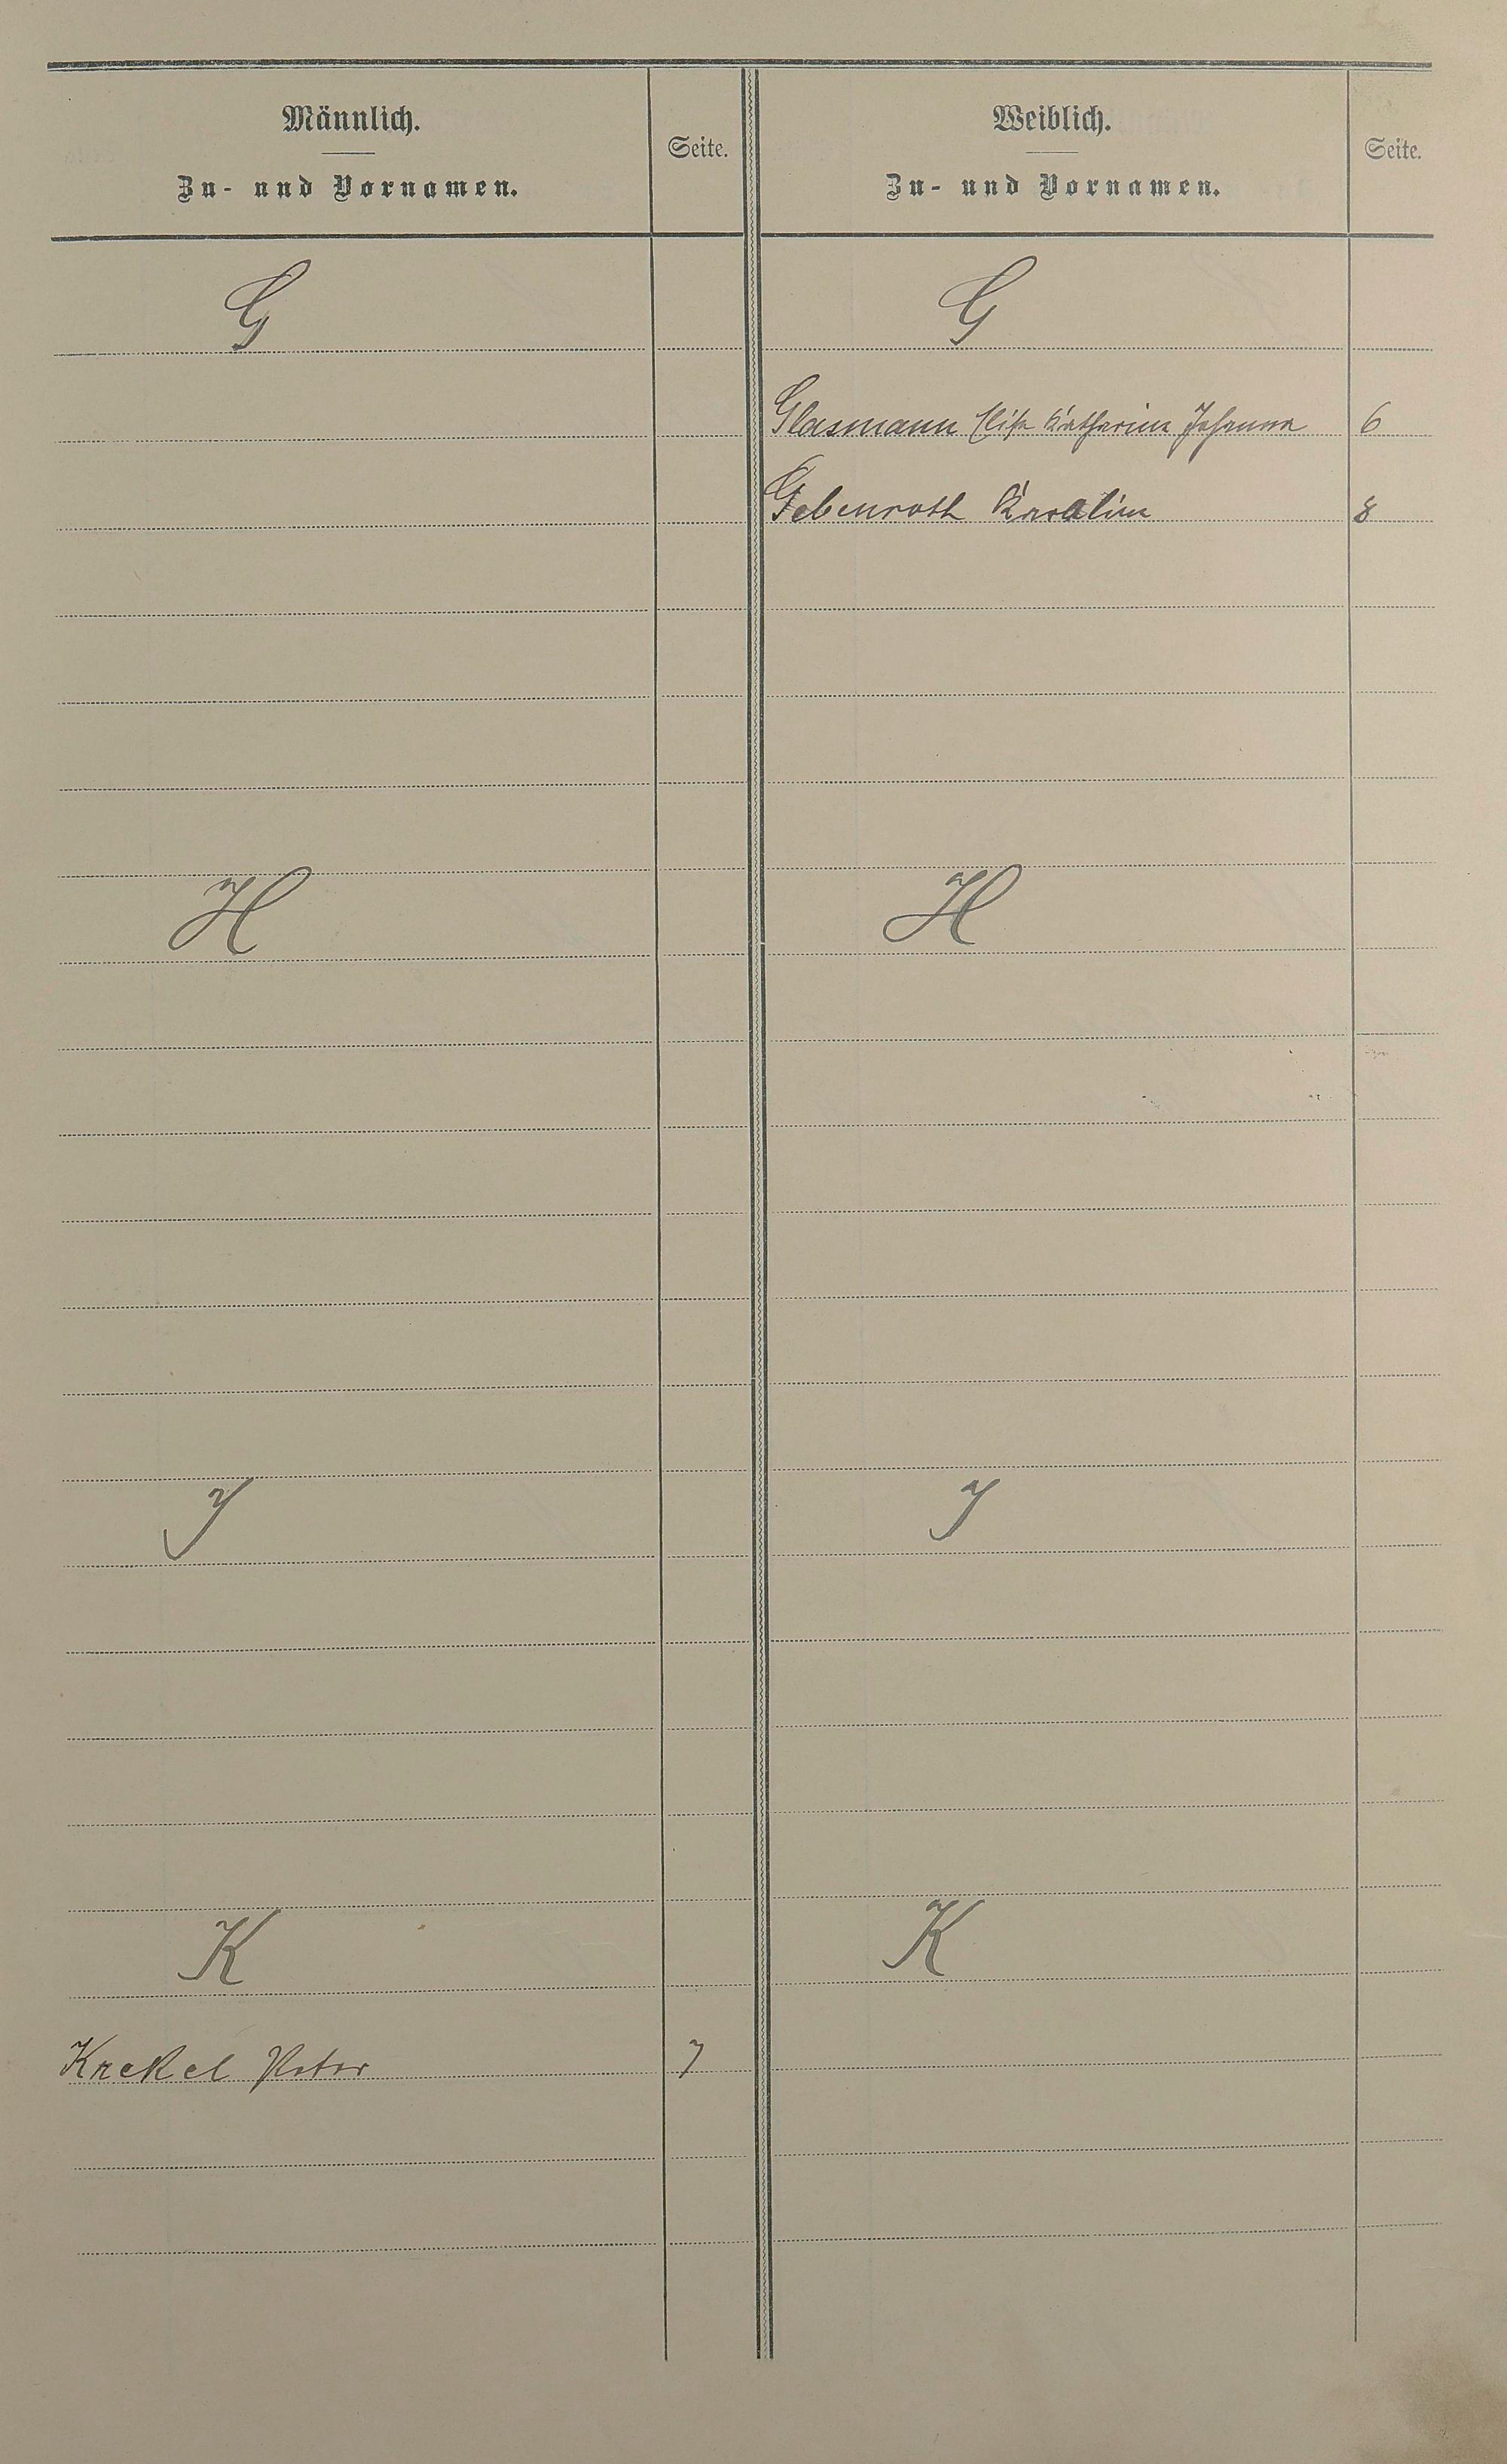 Männlich.
Zu- und Vornamen.
Seite.
Weiblich.
Zu- und Vornamen.
Seite.
G
G
Glasmann Elise Katharina Johanna 6
Gebenroth Karolina 8
H
H
J
J
K
K
Krekel Peter 7